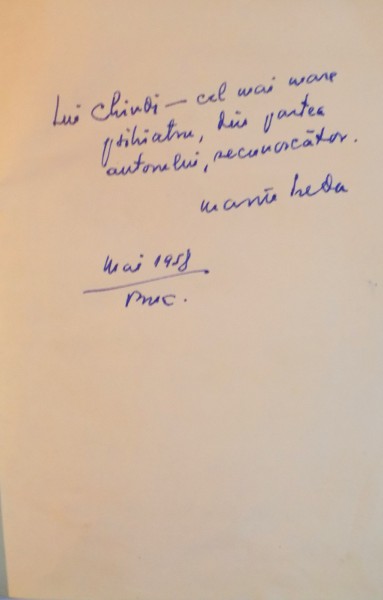 Lui Chindi — cel mai mare
psihiatru, din partea
autorului, recunoscător.
Marin Preda
Mai 1958
Buc.